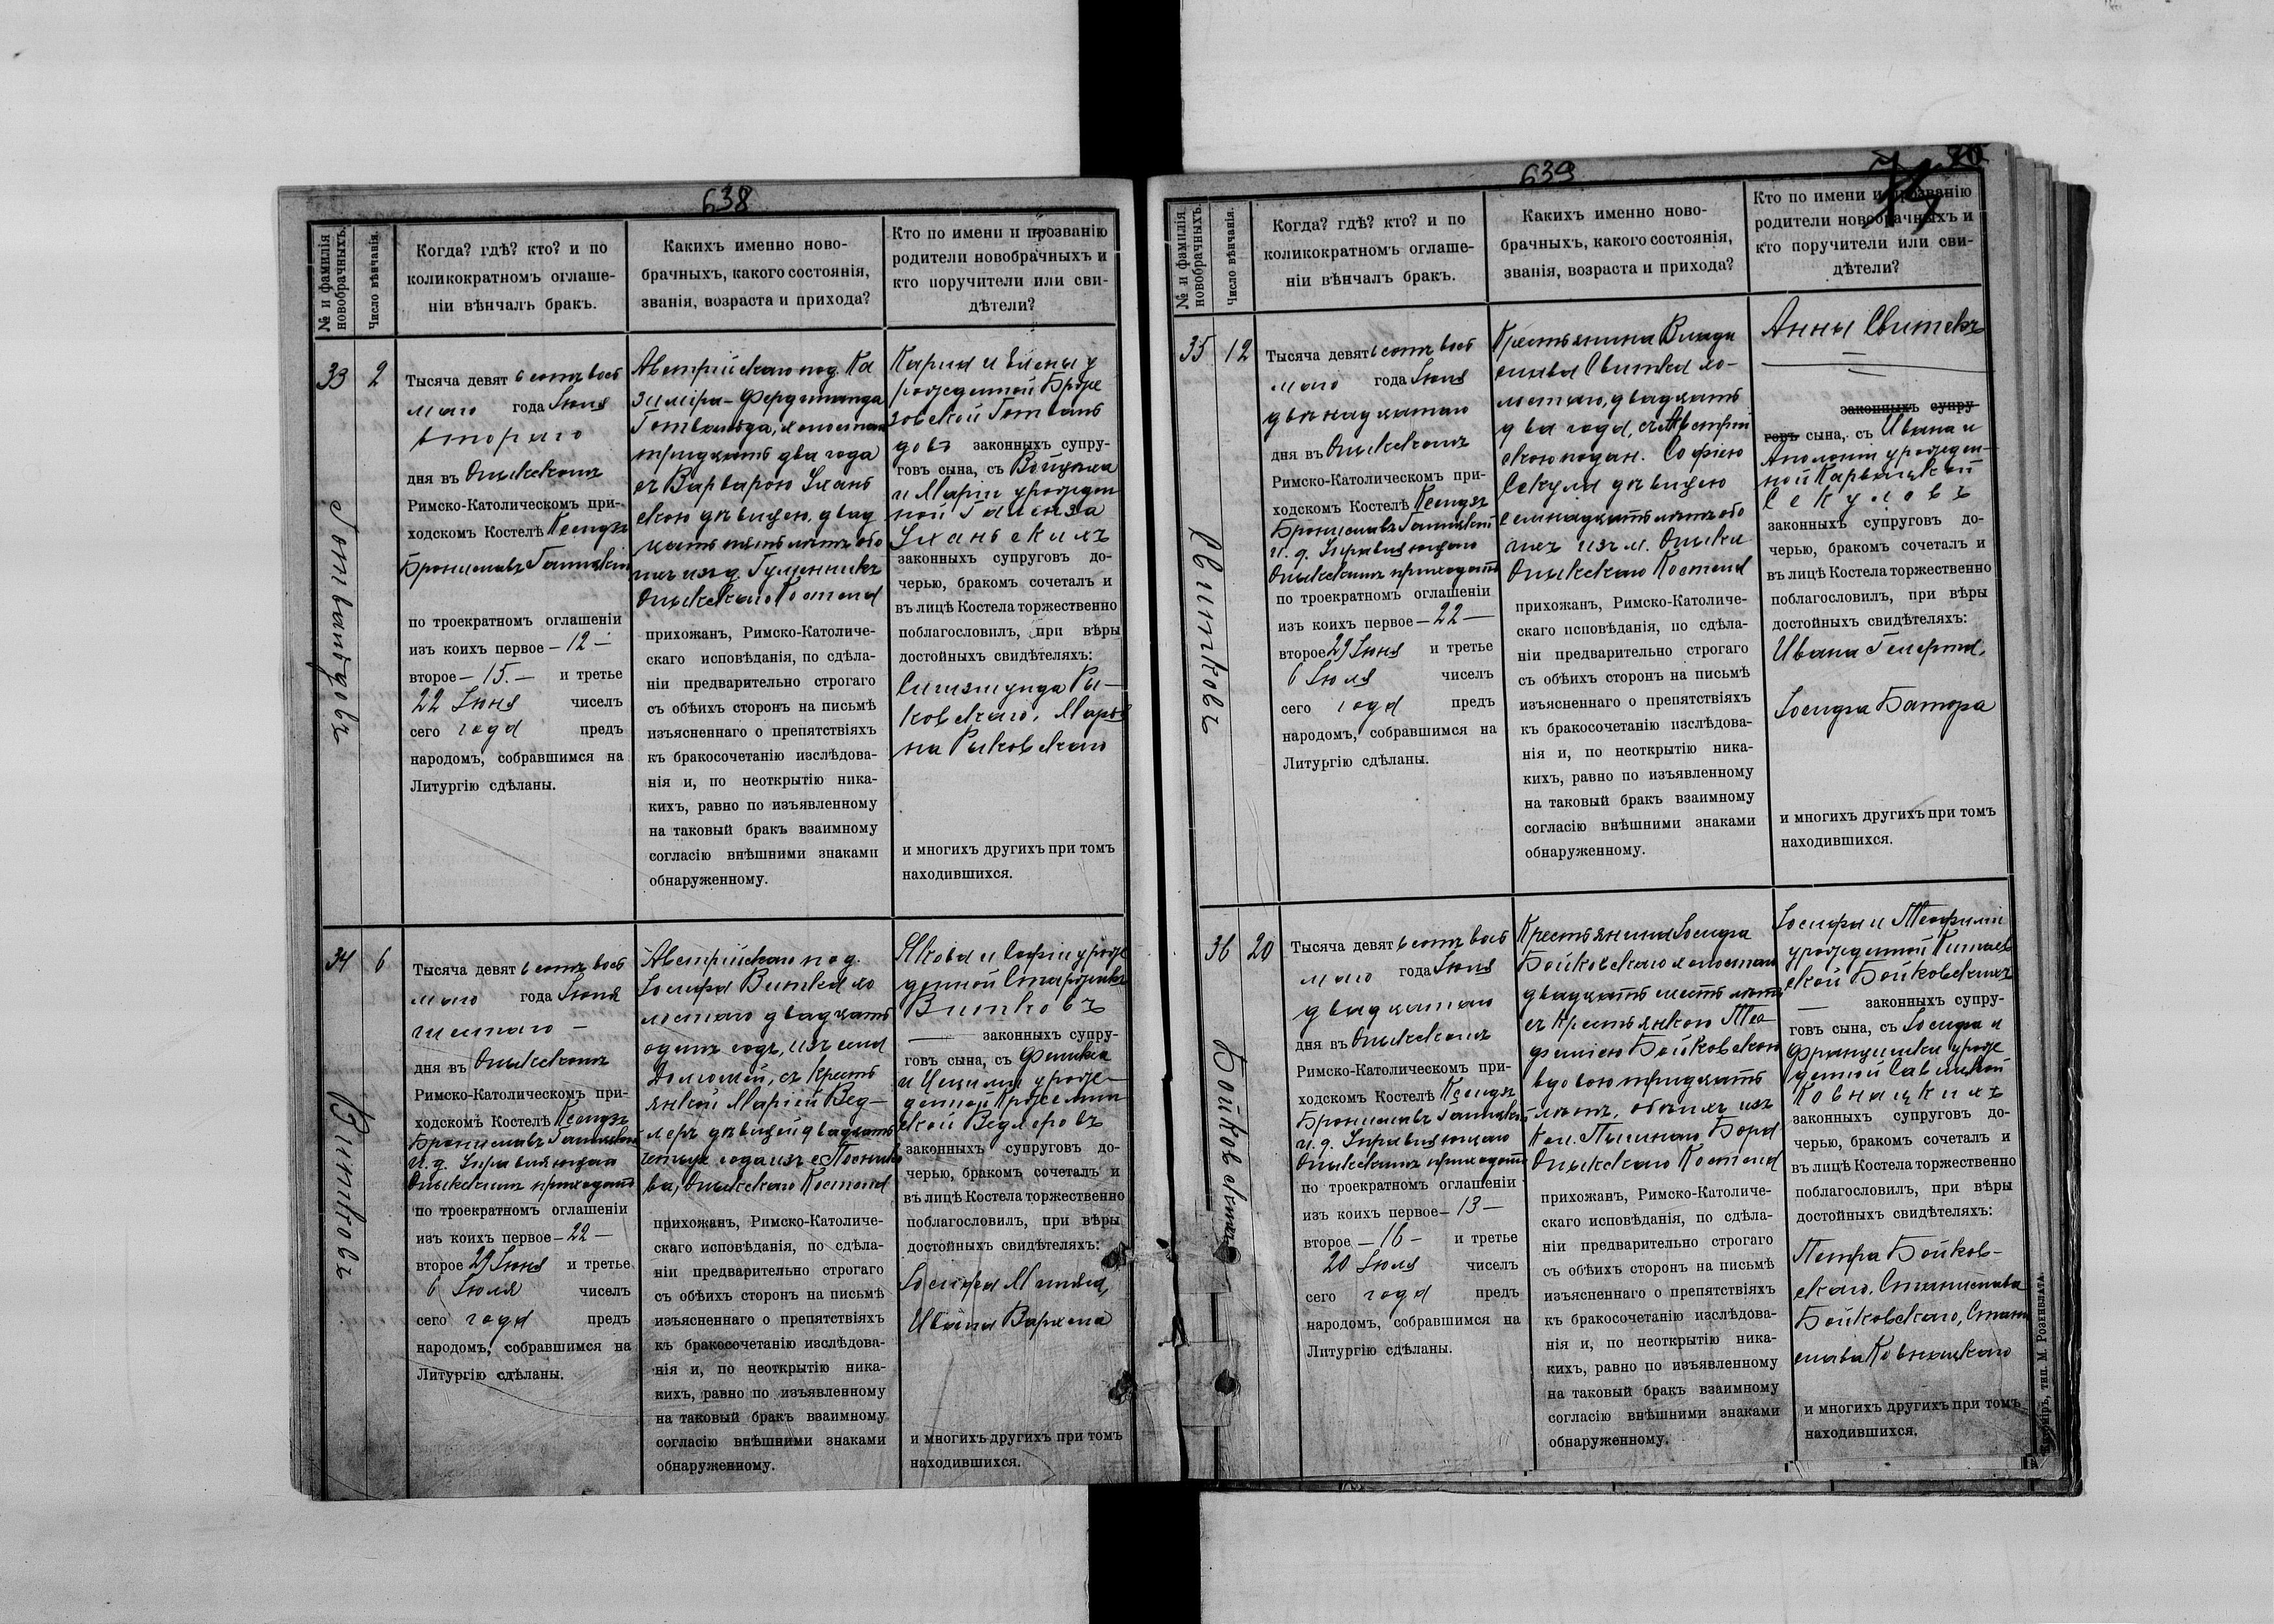 638
№ и фамилія
новобрачныхъ.
Число вѣнчанія.
Когда? гдѣ? кто? и по
коликократномъ оглаше-
ніи вѣнчалъ бракъ.
Какихъ именно ново-
брачныхъ, какого состоянія,
званія, возраста и прихода?
Кто по имени и прозванію
родители новобрачныхъ и
кто поручители или сви-
дѣтели?
33
2
Тысяча девятьсотъ вось
маго года Іюля
второго
дня въ Олыкскомъ
Римско-Католическомъ при-
ходскомъ Костелѣ Ксендзъ
Брониславъ
по троекратномъ оглашеніи
изъ коихъ первое — 12 —
второе — 15. — и третье
22 Іюня чиселъ
сего года предъ
народомъ, собравшимся на
Литургію сдѣланы.
Австрійскаго под. Ка
зиміра-Фердинанда
Готвальда, холостаго
тридцать два года
съ Варварою Ухань
скою дѣвицею, двад
цать пять лѣтъ обо
ихъ изъ д.
Олыкскаго Костела
прихожанъ, Римско-Католиче-
скаго исповѣданія, по сдѣла-
ніи предварительно строгаго
съ обѣихъ сторонъ на письмѣ
изъясненнаго о препятствіяхъ
къ бракосочетанію изслѣдова-
нія и, по неоткрытію ника-
кихъ, равно по изъявленному
на таковый бракъ взаимному
согласію внѣшними знаками
обнаруженному.
Карла и Елены у
рожденной
Готваль
довъ законныхъ супру-
говъ сына, съ Войцѣха
и Маріи урожден
ной
Уханьскихъ
законныхъ супруговъ до-
черью, бракомъ сочеталъ и
въ лицѣ Костела торжественно
поблагословилъ, при вѣры
достойныхъ свидѣтеляхъ:
Сигизмунда Ры-
ковскаго, Марьѣ
на Рыковскаго
и многихъ другихъ при томъ
находившихся.
Готвальдовъ
34
6
Тысяча девятьсотъ вось
маго года Іюля
шестаго —
дня въ Олыкскомъ
Римско-Католическомъ при-
ходскомъ Костелѣ Ксендзъ
Брониславъ
И. д. Управляющаго
Олыкскимъ приходомъ
по троекратномъ оглашеніи
изъ коихъ первое — 22 —
второе 29 Іюня и третье
6 Іюля чиселъ
сего года предъ
народомъ, собравшимся на
Литургію сдѣланы.
Австрійскаго под.
Іосифа Витка хо
лостаго двадцать
одинъ годъ, изъ села
съ Кресть
янкой Маріей Вед-
леръ дѣвицей двадцать
четыре года изъ с.
Олыкскаго Костела
прихожанъ, Римско-Католиче-
скаго исповѣданія, по сдѣла-
ніи предварительно строгаго
съ обѣихъ сторонъ на письмѣ
изъясненнаго о препятствіяхъ
къ бракосочетанію изслѣдова-
нія и, по неоткрытію ника-
кихъ, равно по изъявленному
на таковый бракъ взаимному
согласію внѣшними знаками
обнаруженному.
Якова и Софіи урож
денной
Витковъ
— законныхъ супру-
говъ сына, съ Феликса
и Цециліи урож-
денной
ской Ведлеровъ
законныхъ супруговъ до-
черью, бракомъ сочеталъ и
въ лицѣ Костела торжественно
поблагословилъ, при вѣры
достойныхъ свидѣтеляхъ:
Іосифа
Ивана
и многихъ другихъ при томъ
находившихся.
Витковъ
639
№ и фамилія
новобрачныхъ.
Число вѣнчанія.
Когда? гдѣ? кто? и по
коликократномъ оглаше-
ніи вѣнчалъ бракъ.
Какихъ именно ново-
брачныхъ, какого состоянія,
званія, возраста и прихода?
Кто по имени и прозванію
родители новобрачныхъ и
кто поручители или сви-
дѣтели?
35
12
Тысяча девятьсотъ вось
маго года Іюля
двѣнадцатаго
дня въ Олыкскомъ
Римско-Католическомъ при-
ходскомъ Костелѣ Ксендзъ
Брониславъ
И. д. Управляющаго
Олыкскимъ приходомъ
по троекратномъ оглашеніи
изъ коихъ первое — 22 —
второе 29 Іюня и третье
6 Іюля чиселъ
сего года предъ
народомъ, собравшимся на
Литургію сдѣланы.
Крестьянина Влади
слава Свитка хо-
лостаго, двадцать
два года, съ Австрій
скою подан. Софіею
Секула дѣвицею
семнадцать лѣтъ обо
ихъ изъ м. Олыки
Олыкскаго Костела
прихожанъ, Римско-Католиче-
скаго исповѣданія, по сдѣла-
ніи предварительно строгаго
съ обѣихъ сторонъ на письмѣ
изъясненнаго о препятствіяхъ
къ бракосочетанію изслѣдова-
нія и, по неоткрытію ника-
кихъ, равно по изъявленному
на таковый бракъ взаимному
согласію внѣшними знаками
обнаруженному.
Анны Свитекъ
законныхъ супру-
говъ сына, съ Ивана и
Аполоніи урожден-
ной
Секуловъ
законныхъ супруговъ до-
черью, бракомъ сочеталъ и
въ лицѣ Костела торжественно
поблагословилъ, при вѣры
достойныхъ свидѣтеляхъ:
Ивана
Іосифа Батора
и многихъ другихъ при томъ
находившихся.
Свитковъ
36
20
Тысяча девятьсотъ вось
маго года Іюля
двадцатаго
дня въ Олыкскомъ
Римско-Католическомъ при-
ходскомъ Костелѣ Ксендзъ
Брониславъ
И. д. Управляющаго
Олыкскимъ приходомъ
по троекратномъ оглашеніи
изъ коихъ первое — 13 —
второе — 16 — и третье
20 Іюля чиселъ
сего года предъ
народомъ, собравшимся на
Литургію сдѣланы.
Крестьянина Іосифа
Бойковскаго холостаго
двадцать шесть лѣтъ
съ Крестьянкою Тео-
филіею Бойковскою
вдовою тридцать
лѣтъ, обоихъ изъ
Кол.
Олыкскаго Костела
прихожанъ, Римско-Католиче-
скаго исповѣданія, по сдѣла-
ніи предварительно строгаго
съ обѣихъ сторонъ на письмѣ
изъясненнаго о препятствіяхъ
къ бракосочетанію изслѣдова-
нія и, по неоткрытію ника-
кихъ, равно по изъявленному
на таковый бракъ взаимному
согласію внѣшними знаками
обнаруженному.
Іосифа и Теофиліи
урожденной
ской Бойковскихъ
— законныхъ супру-
говъ сына, съ Іосифа и
Францишки урож
денной
Ковнацкихъ
законныхъ супруговъ до-
черью, бракомъ сочеталъ и
въ лицѣ Костела торжественно
поблагословилъ, при вѣры
достойныхъ свидѣтеляхъ:
Петра Бойков-
скаго, Станислава
Бойковскаго, Стани
слава Ковнацкаго
и многихъ другихъ при томъ
находившихся.
тип. М. Розенблата.